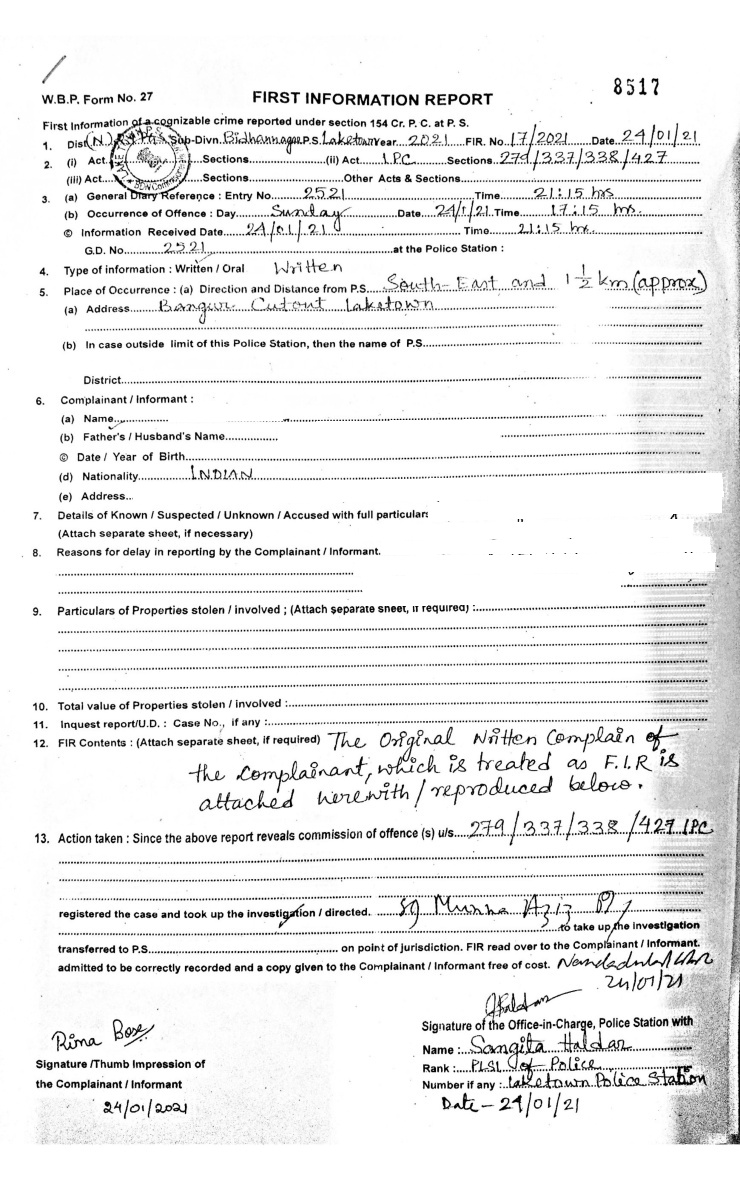 8517
W.B.P. Form No. 27 FIRST INFORMATION REPORT
First Information of a cognizable crime reported under section 154 Cr. P. C. at P. S.
1. Dist (N) Sub-Divn. Bidhannagar P.S. Laketown Year 2021 FIR. No 17/2021 Date 24/01/21
2. (i) Act Sections (ii) Act IPC Sections 279/337/338/427
(iii) Act Sections Other Acts & Sections
3. (a) General Diary Reference : Entry No 2521 Time 21:15 hrs
(b) Occurrence of Offence : Day Sunday Date 24/1/21 Time 17:15 hrs.
© Information Received Date 24/01/21 Time 21:15 hrs.
G.D. No 2521 at the Police Station :
4. Type of information : Written / Oral Written
5. Place of Occurrence : (a) Direction and Distance from P.S. South-East and 1 1/2 km (approx)
(a) Address Bangur Cutout Laketown
(b) In case outside limit of this Police Station, then the name of P.S
District
6. Complainant / Informant :
(a) Name
(b) Father's / Husband's Name
© Date / Year of Birth
(d) Nationality INDIAN
(e) Address
7. Details of Known / Suspected / Unknown / Accused with full particulars
(Attach separate sheet, if necessary)
8. Reasons for delay in reporting by the Complainant / Informant.
9. Particulars of Properties stolen / involved ; (Attach separate sheet, if required) :
10. Total value of Properties stolen / involved :
11. Inquest report/U.D. : Case No., if any :
12. FIR Contents : (Attach separate sheet, if required) The Original Written Complain of
the Complainant, which is treated as F.I.R is
attached herewith / reproduced below.
13. Action taken : Since the above report reveals commission of offence (s) u/s 279/337/338/427 IPC
registered the case and took up the investigation / directed. SI Munna Aziz
to take up the investigation
transferred to P.S. on point of jurisdiction. FIR read over to the Complainant / Informant.
admitted to be correctly recorded and a copy given to the Complainant / Informant free of cost.
24/01/21
Rima Bose
Signature /Thumb Impression of
the Complainant / Informant
24/01/2021
SHaldar
Signature of the Office-in-Charge, Police Station with
Name : Sangita Haldar
Rank : PLSI of Police
Number if any : Laketown Police Station
Date - 24/01/21